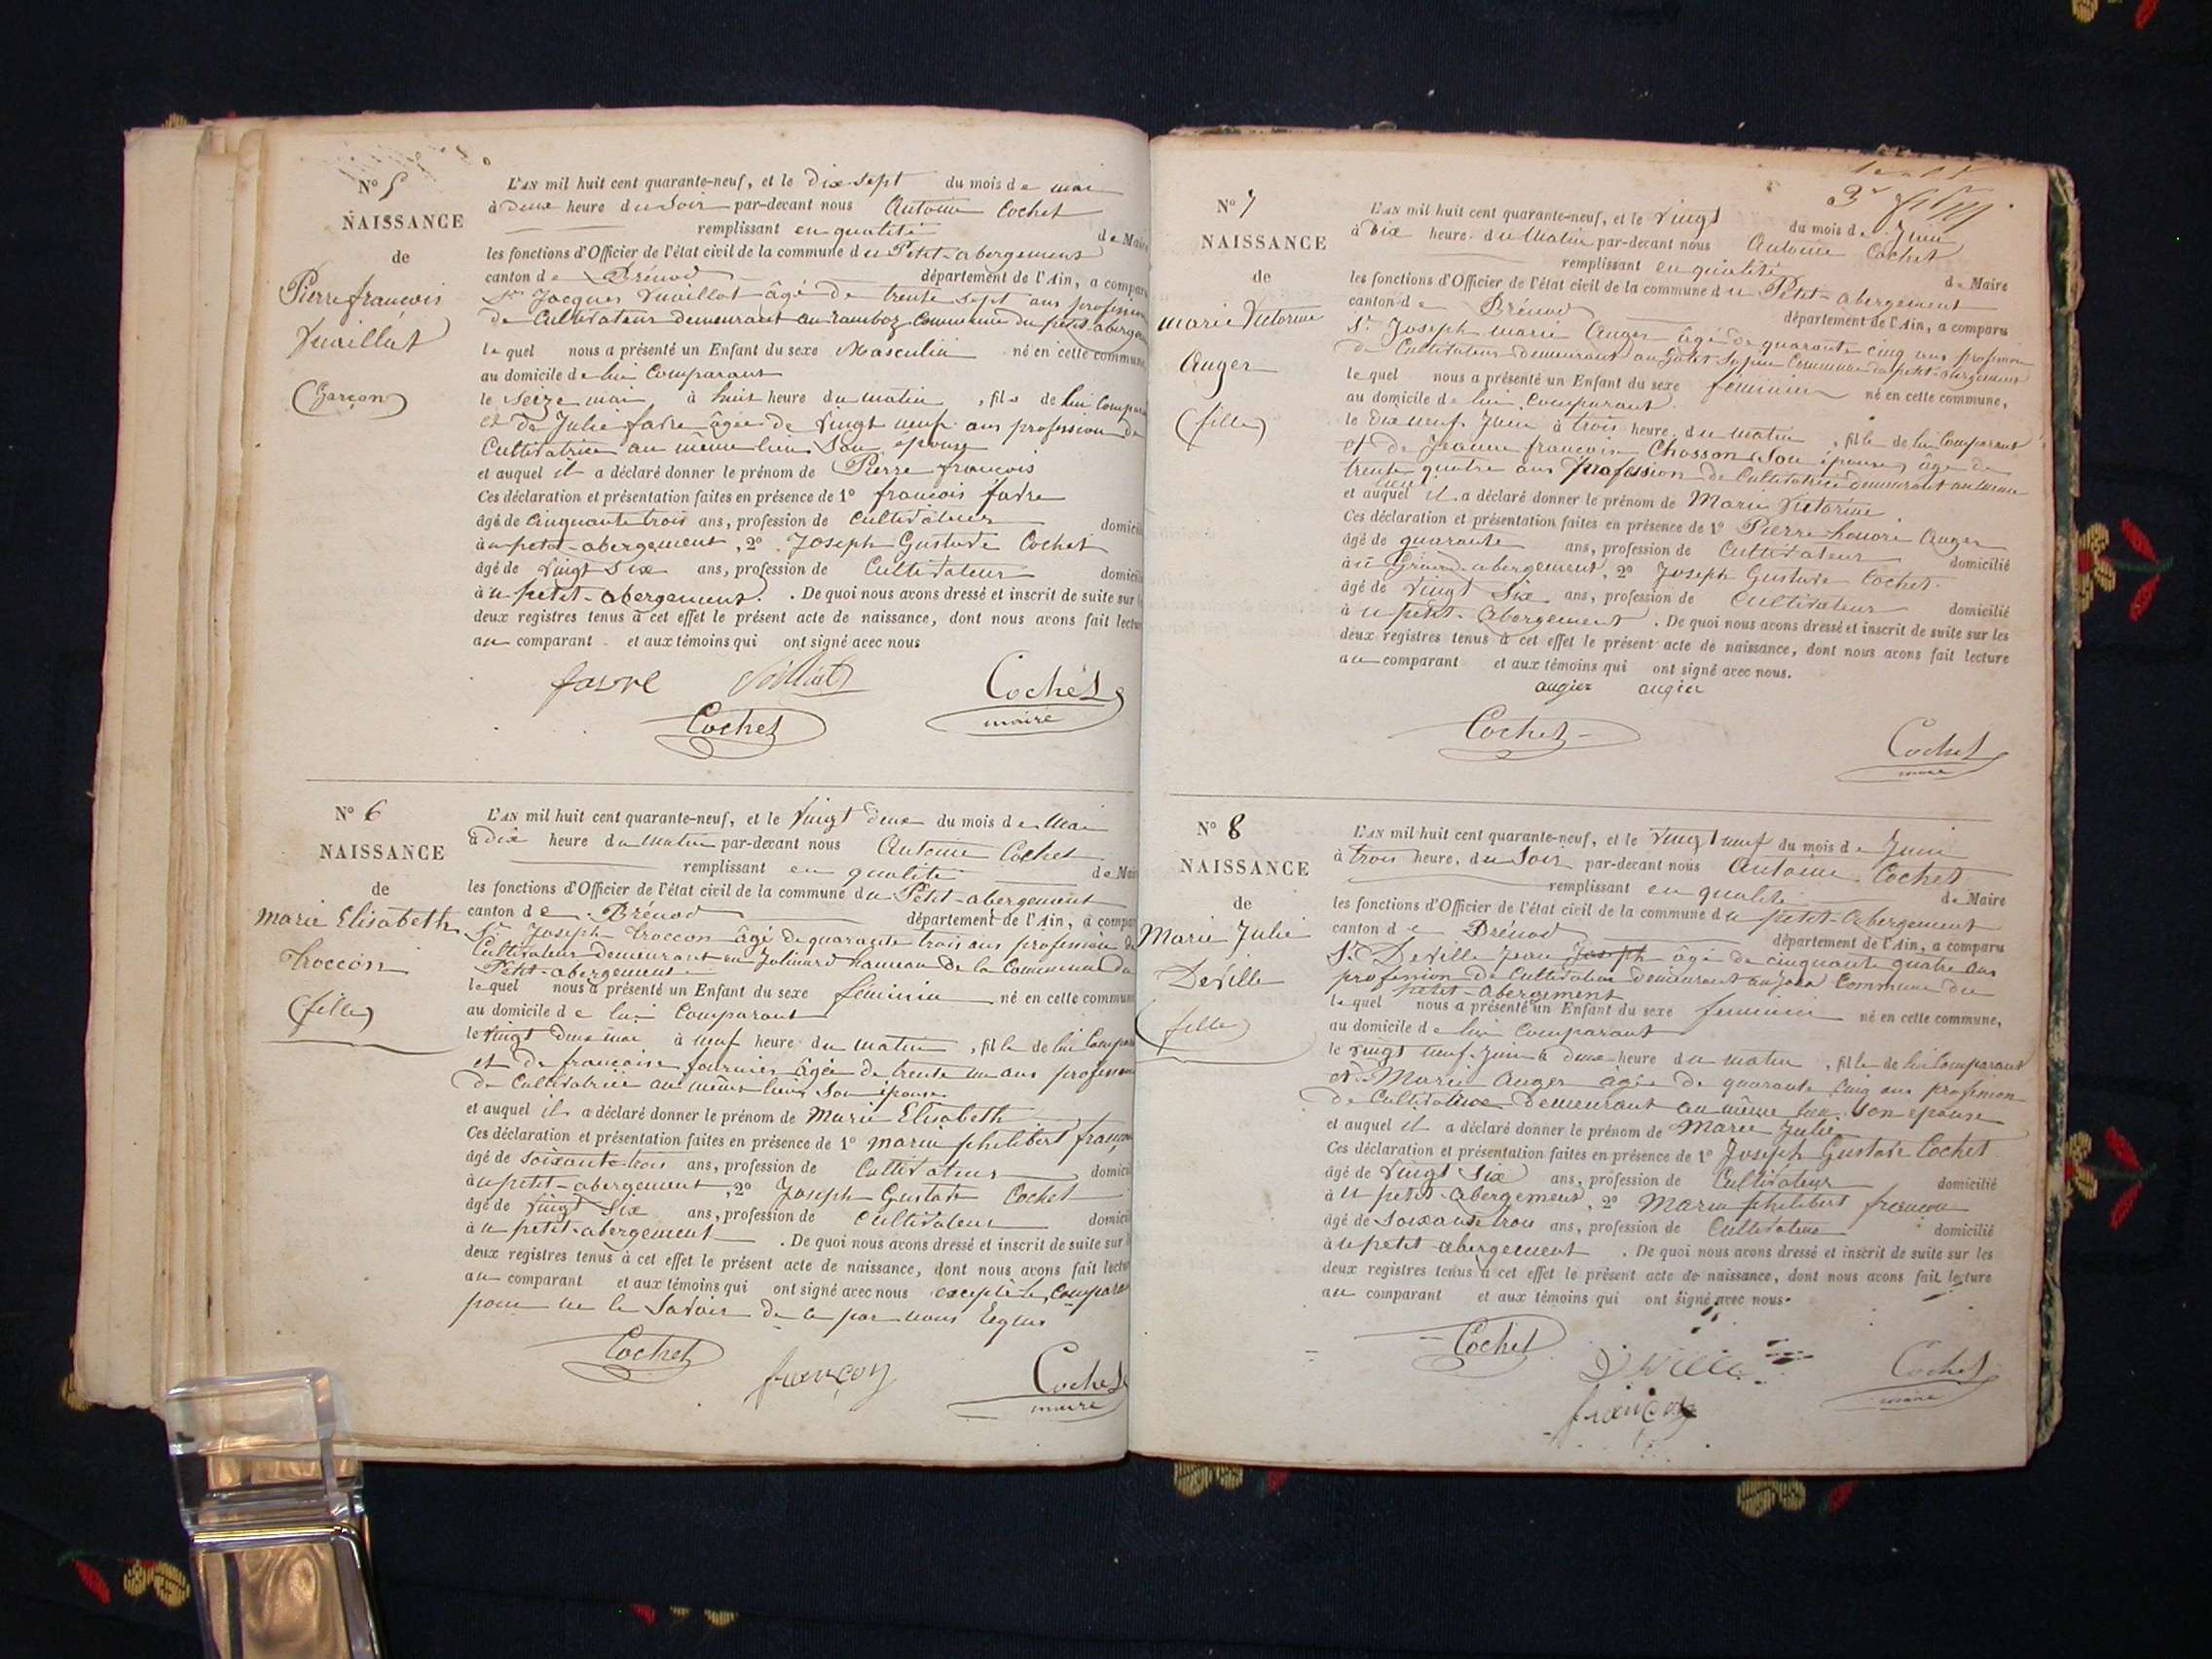 N° 5
NAISSANCE
de
Pierre francois
Juaillat
(Garçon)
L'AN mil huit cent quarante-neuf, et le Dix-sept du mois de mai
à deux heure du Soir par-devant nous Antoine Cochet
remplissant en qualité de Maire
les fonctions d'Officier de l'état civil de la commune du Petit-abergement
canton de Brénod département de l'Ain, a comparu
Sr Jacques âgé de trente sept ans profession
de Cultivateur demeurant au ramboz Commune du petit aberge
lequel nous a présenté un Enfant du sexe Masculin né en cette commune
au domicile de lui Comparant
le seize mai à huit heure du matin , fils de lui Compar
et de Julie favre âgée de vingt neuf ans profession de
Cultivatrice au même lieu Son épouse
et auquel il a déclaré donner le prénom de Pierre francois
Ces déclaration et présentation faites en présence de 1° francois favre
âgé de Cinquante trois ans, profession de Cultivateur domicili
au petit-abergement , 2° Joseph Gustave Cochet
âgé de vingt Six ans, profession de Cultivateur domicili
au petit-abergement . De quoi nous avons dressé et inscrit de suite sur
deux registres tenus à cet effet le présent acte de naissance, dont nous avons fait lectur
au comparant et aux témoins qui ont signé avec nous
favre Cochet
Cochet maire
N° 6
NAISSANCE
de
Marie Elisabeth
Troccon
(fille)
L'AN mil huit cent quarante-neuf, et le Vingt deux du mois de Mai
à dix heure du matin par-devant nous Antoine Cochet
remplissant en qualité de Mair
les fonctions d'Officier de l'état civil de la commune du Petit-abergement
canton de Brénod département de l'Ain, a compar
Sr Joseph Troccon âgé de quarante trois ans profession de
Cultivateur demeurant en Jalinard hameau de la Commune du
Petit-abergement
lequel nous a présenté un Enfant du sexe féminin né en cette commun
au domicile de lui Comparant
le vingt deux mai à neuf heure du matin , fille de lui Compar
et de francoise fournier âgée de trente un ans profession
de Cultivatrice au même lieu Son épouse
et auquel il a déclaré donner le prénom de Marie Elisabeth
Ces déclaration et présentation faites en présence de 1° Marin philibert françon
âgé de Soixante trois ans, profession de Cultivateur domicil
au petit-abergement , 2° Joseph Gustave Cochet
âgé de vingt Six ans, profession de Cultivateur domicil
au petit-abergement . De quoi nous avons dressé et inscrit de suite sur
deux registres tenus à cet effet le présent acte de naissance, dont nous avons fait lectur
au comparant et aux témoins qui ont signé avec nous excepté le Compara
pour ne le Savoir de ce par nous
Cochet françon Cochet
maire
N° 7
NAISSANCE
de
marie Victorine
Auger
(fille)
L'AN mil huit cent quarante-neuf, et le Vingt du mois de Juin
à Dix heure du Matin par-devant nous Antoine Cochet
remplissant en qualité de Maire
les fonctions d'Officier de l'état civil de la commune du Petit-abergement
canton de Brénod département de l'Ain, a comparu
Sr Joseph marie Auger âgé de quarante cinq ans profession
de Cultivateur demeurant au Commune du petit-abergement
lequel nous a présenté un Enfant du sexe féminin né en cette commune,
au domicile de lui Comparant
le dix neuf Juin à trois heure du matin , fille de lui Comparant
et de Jeanne francoise Chosson Son épouse âgé de
trente quatre ans Profession de Cultivatrice demeurant au même
lieu
et auquel il a déclaré donner le prénom de Marie Victorine
Ces déclaration et présentation faites en présence de 1° Pierre honoré Auger
âgé de quarante ans, profession de Cultivateur domicilié
au Grand-abergement , 2° Joseph Gustave Cochet
âgé de vingt Six ans, profession de Cultivateur domicilié
au petit-abergement . De quoi nous avons dressé et inscrit de suite sur les
deux registres tenus à cet effet le présent acte de naissance, dont nous avons fait lecture
au comparant et aux témoins qui ont signé avec nous.
augier augier
Cochet Cochet
maire
N° 8
NAISSANCE
de
Marie Julie
Deville
(fille)
L'AN mil huit cent quarante-neuf, et le vingt neuf du mois de Juin
à trois heure du Soir par-devant nous Antoine Cochet
remplissant en qualité de Maire
les fonctions d'Officier de l'état civil de la commune du petit-abergement
canton de Brénod département de l'Ain, a comparu
Sr Deville Jean Joseph âgé de cinquante quatre ans
profession de Cultivateur demeurant au Commune du
petit-abergement
lequel nous a présenté un Enfant du sexe feminin né en cette commune,
au domicile de lui Comparant
le vingt neuf Juin à deux heure du matin , fille de lui Comparant
et Marie Auger âgée de quarante Cinq ans profession
de Cultivatrice demeurant au même lieu Son epouse
et auquel il a déclaré donner le prénom de Marie Julie
Ces déclaration et présentation faites en présence de 1° Joseph Gustave Cochet
âgé de vingt Six ans, profession de Cultivateur domicilié
au petit-abergement , 2° Marin philibert françon
âgé de Soixante trois ans, profession de Cultivateur domicilié
au petit abergement . De quoi nous avons dressé et inscrit de suite sur les
deux registres tenus à cet effet le présent acte de naissance, dont nous avons fait lecture
au comparant et aux témoins qui ont signé avec nous.
Cochet Cochet
maire
françon